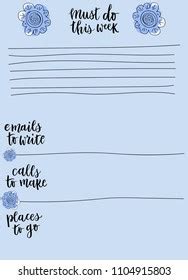 must do
this week
emails
to write
calls
to make
places
to go
www.shutterstock.com · 1104915803